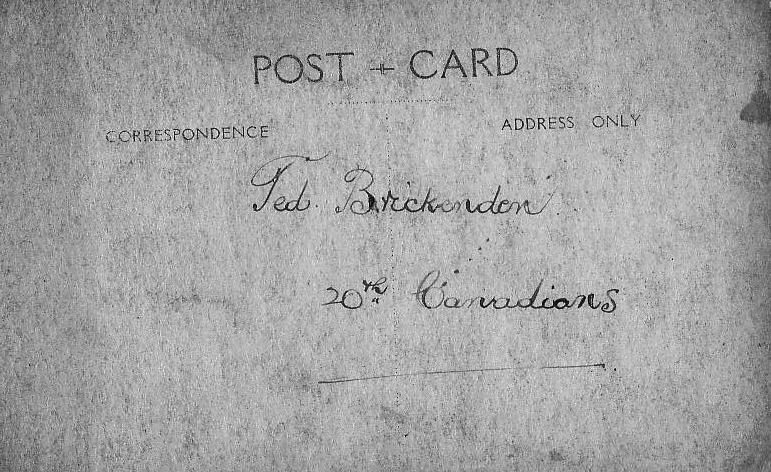 POST + CARD
CORRESPONDENCE
ADDRESS ONLY
Ted. Brickenden
20th Canadians